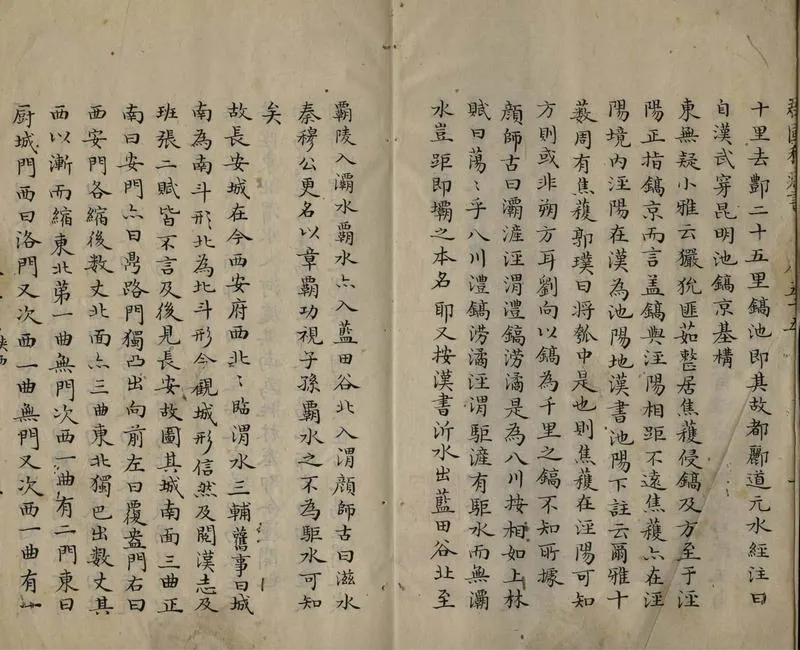 十里去酆二十五里鎬池即其故都酈道元水經注曰
自漢武穿昆明池鎬京基構
東無疑小雅云玁狁匪茹整居焦穫侵鎬及方至于涇
陽正指鎬京而言盖鎬與涇陽相距不遠焦穫亦在涇
陽境內涇陽在漢為池陽地漢書池陽下註云爾雅十
藪周有焦穫郭璞曰將瓠中是也則焦穫在涇陽可知
方則或非朔方耳劉向以鎬為千里之鎬不知所據
顔師古曰灞滻涇渭澧鎬澇潏是為八川按相如上林
賦曰蕩〻乎八川澧鎬澇潏涇渭駆滻有駆水而無灞
水豈距即壩之本名耶又按漢書沂水出藍田谷北至
霸陵入灞水霸水亦入藍田谷北入渭顔師古曰滋水
秦穆公更名以章霸功視子孫霸水之不為駆水可知
矣
故長安城在今西安府西北〻臨渭水三輔舊事曰城
南為南斗形北為北斗形今觀城形信然及閱漢志及
班張二賦皆不言及後見長安故圖其城南面三曲正
南曰安門亦曰鼎路門獨凸出向前左曰覆盎門右曰
西安門各縮後數丈北面亦三曲東北獨已出數丈其
西以漸而縮東北苐一曲無門次西一曲有二門東曰
厨城門西曰洛門又次西一曲無門又次西一曲有